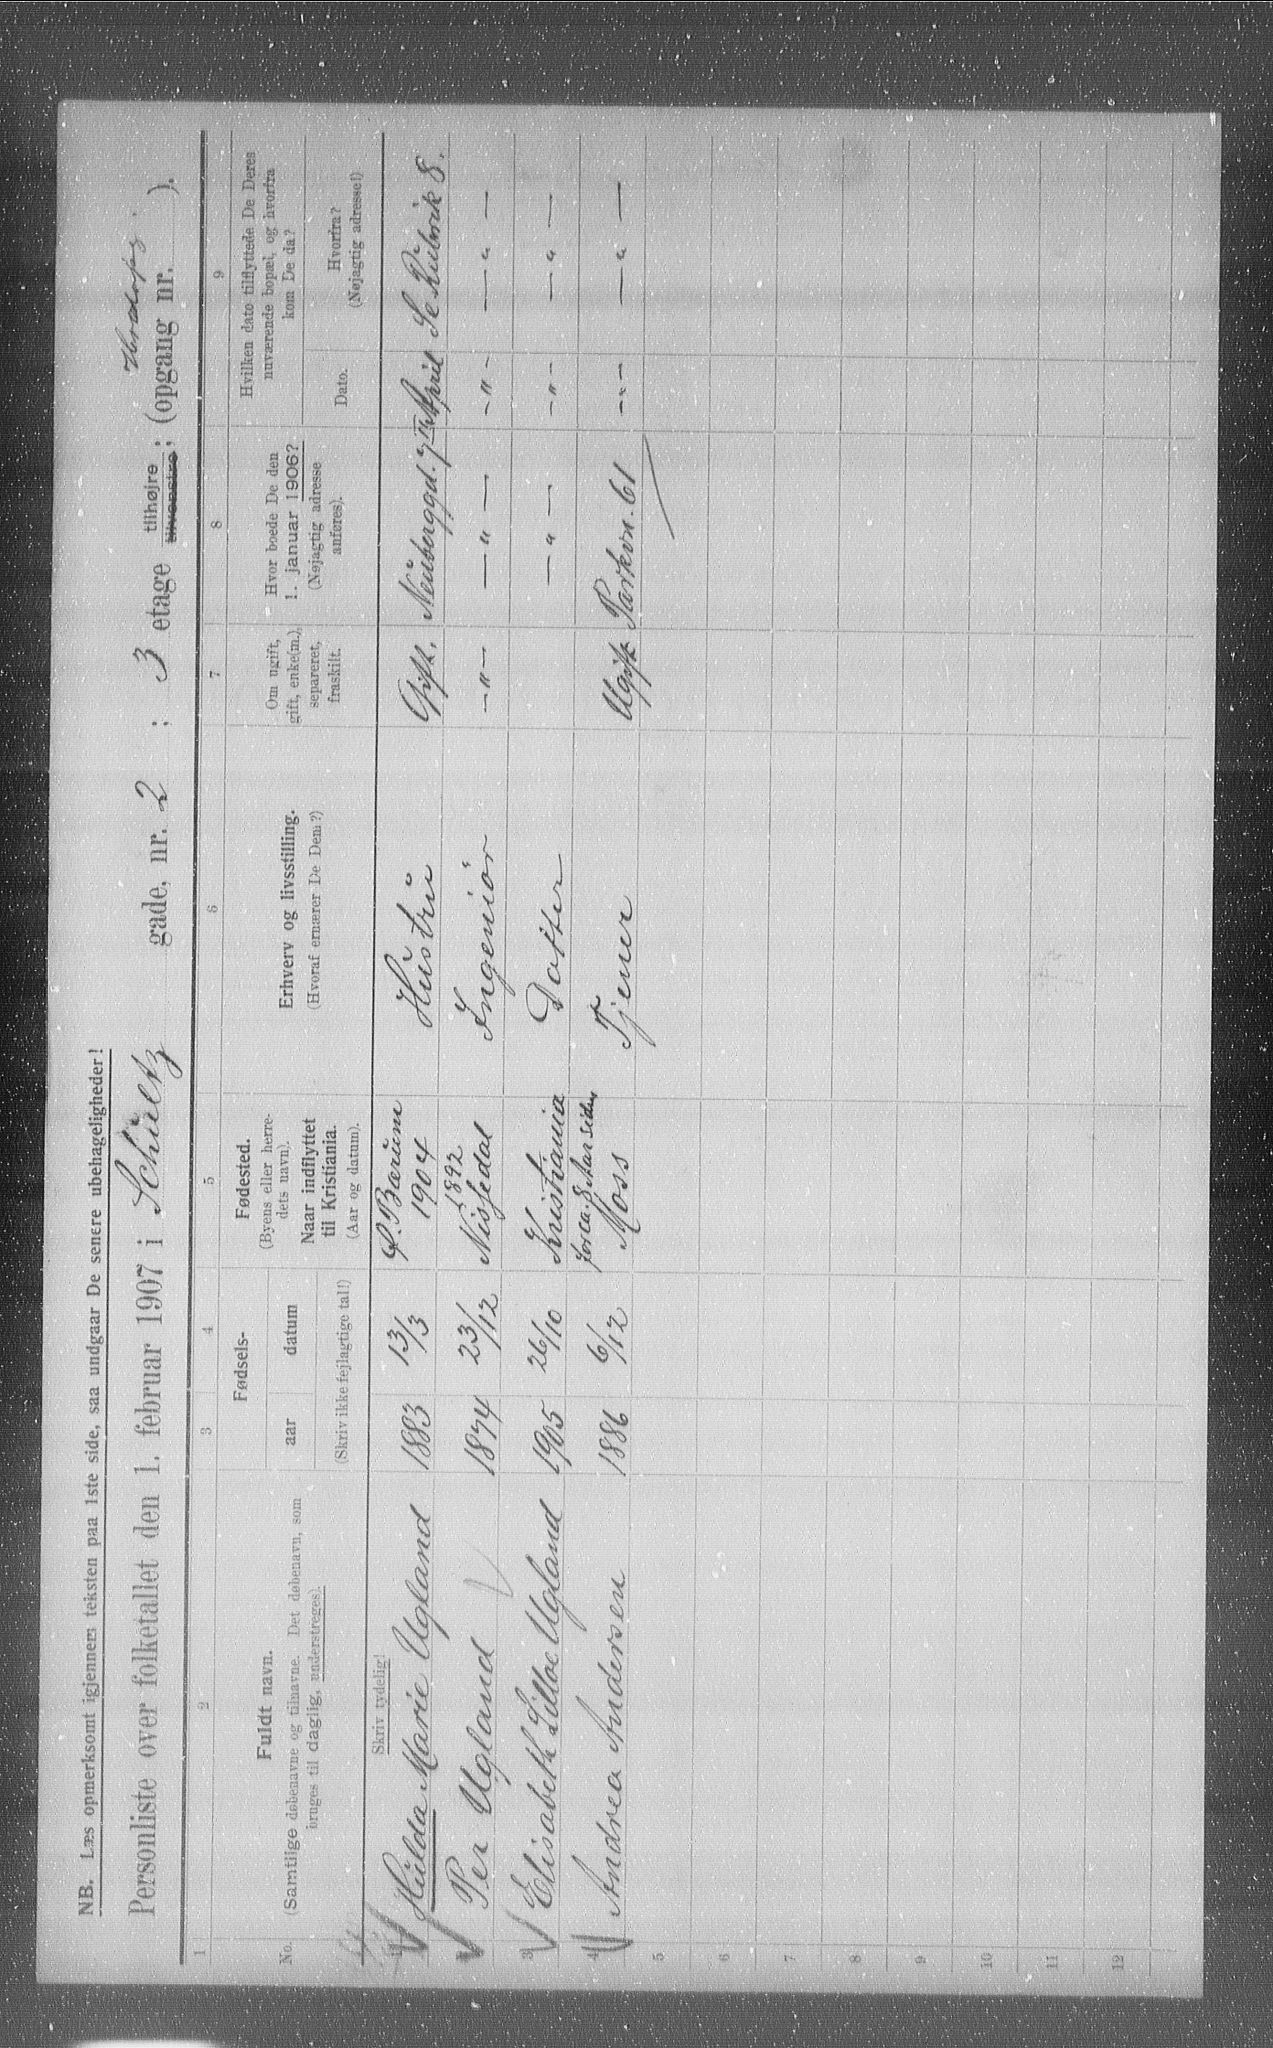 NB. Læs opmerksomt igjennem teksten paa 1ste side, saa undgaar De senere ubehageligheder!
Personliste over folketallet den 1. februar 1907 i Schültz gade, nr. 2 ; 3 etage tilhøjre tilvenstre ; (opgang nr. ).
1 2 3 4 5 6 7 8 9
No.
Fuldt navn.
(Samtlige døbenavne og tilnavne. Det døbenavn, som
bruges til daglig, understreges).
Skriv tydelig!
Fødsels-
aar datum
(Skriv ikke fejlagtige tal!)
Fødested.
(Byens eller herre-
dets navn).
Naar indflyttet
til Kristiania.
(Aar og datum).
Erhverv og livsstilling.
(Hvoraf ernærer De Dem?)
Om ugift,
gift, enke(m.),
separeret,
fraskilt.
Hvor boede De den
1. januar 1906?
(Nøjagtig adresse
anføres).
Hvilken dato tilflyttede De Deres
nuværende bopæl, og hvorfra
kom De da?
Dato.
Hvorfra?
(Nøjagtig adresse!)
1 Hulda Marie Ugland 1883 13/3 Bærum 1904 Hustru Gift. Neubergd. 7 April 8.
2 Per Ugland 1874 23/12 1892 Nissedal Ingeniør -"- -"- -"- -"-
3 Elisabeth Lilloe Ugland 1905 26/10 Kristiania Datter -"- -"- -"-
4 Andrea Andersen 1886 6/12 for ca. 8 Aar siden Moss Tjener Ugift Parkvn. 61 -"- -"-
5
6
7
8
9
10
11
12